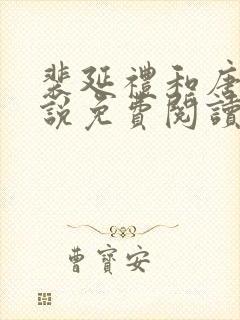 裴延禮和唐
說免費閱讀
曹寶安